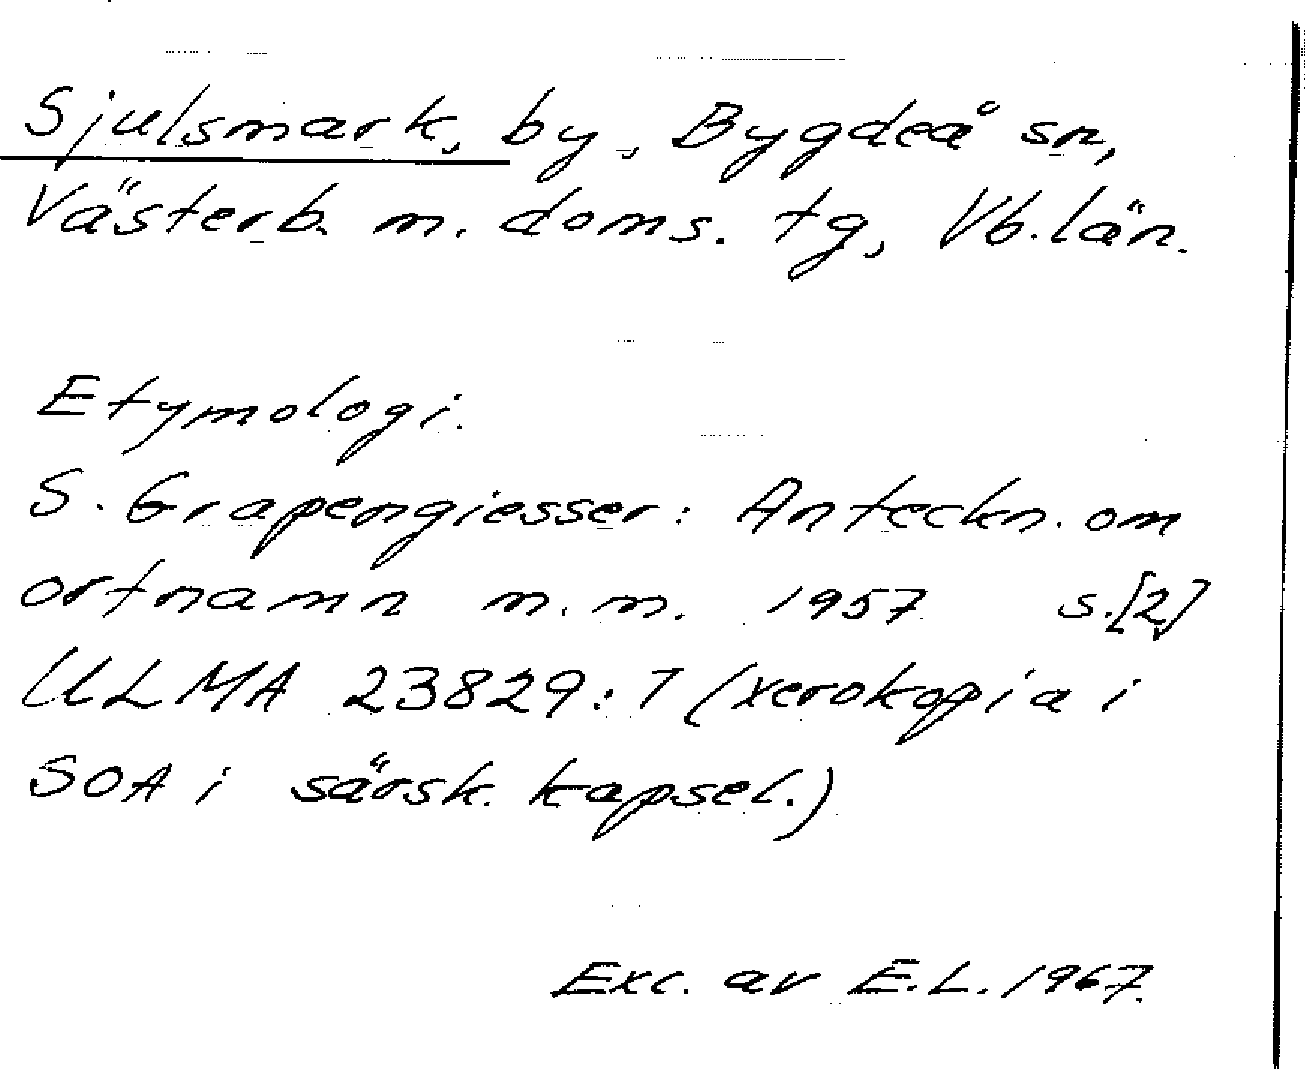 Sjulsmark, by, Bygdeå sn,
Västerb. m. doms. tg, Vb. län.
Etymologi.
S. Grapengiesser: Anteckn. om
ortnamn m.m. 1957 s.[2]
ULMA 23829:7 (xerokopia i
SOA i särsk. kapsel.)
Exc. av E.L. 1967.